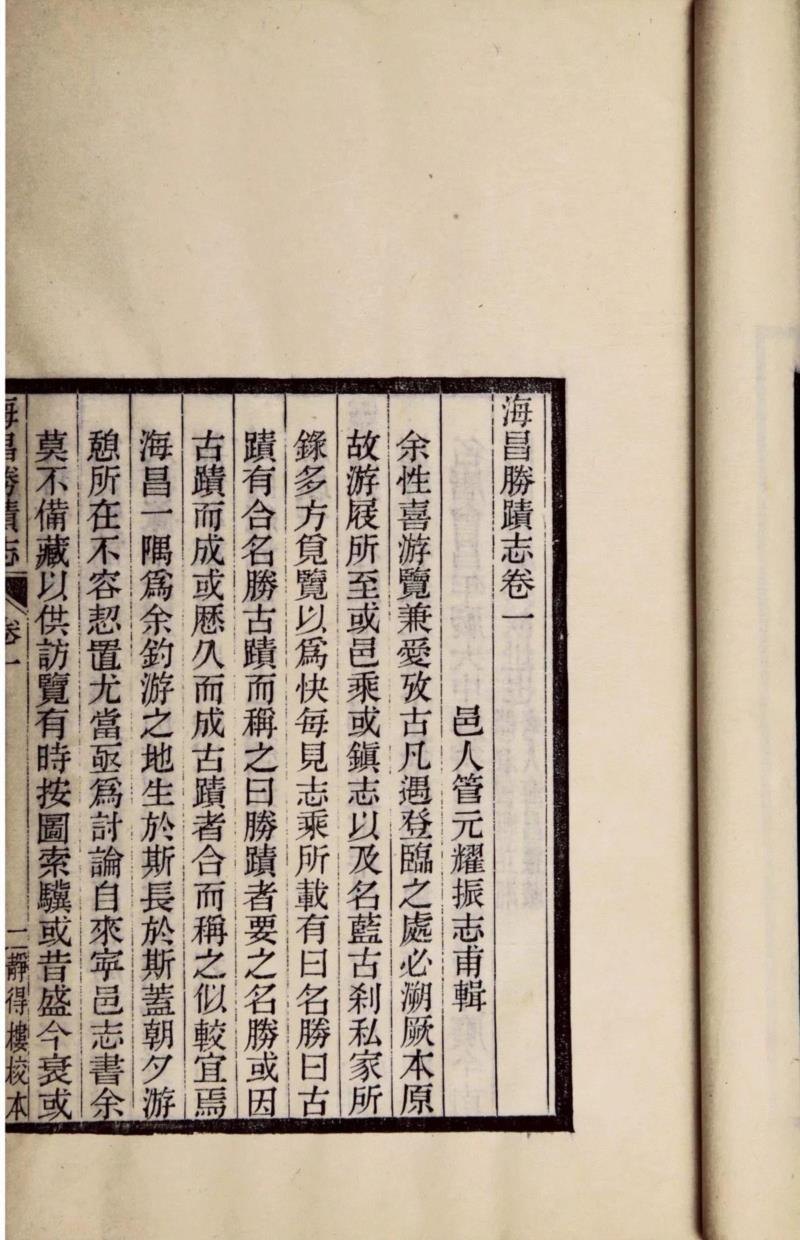 海昌勝蹟志卷一
邑人管元耀振志甫輯
余性喜游覽兼愛攷古凡遇登臨之處必溯厥本原
故游屐所至或邑乘或鎭志以及名藍古刹私家所
錄多方覓覽以爲快每見志乘所載有曰名勝曰古
蹟有合名勝古蹟而稱之曰勝蹟者要之名勝或因
古蹟而成或歷久而成古蹟者合而稱之似較宜焉
海昌一隅爲余釣游之地生於斯長於斯蓋朝夕游
憩所在不容恝置尤當亟爲討論自來寜邑志書余
莫不備藏以供訪覽有時按圖索驥或昔盛今衰或
海昌勝蹟志 卷一 一 靜得樓校本